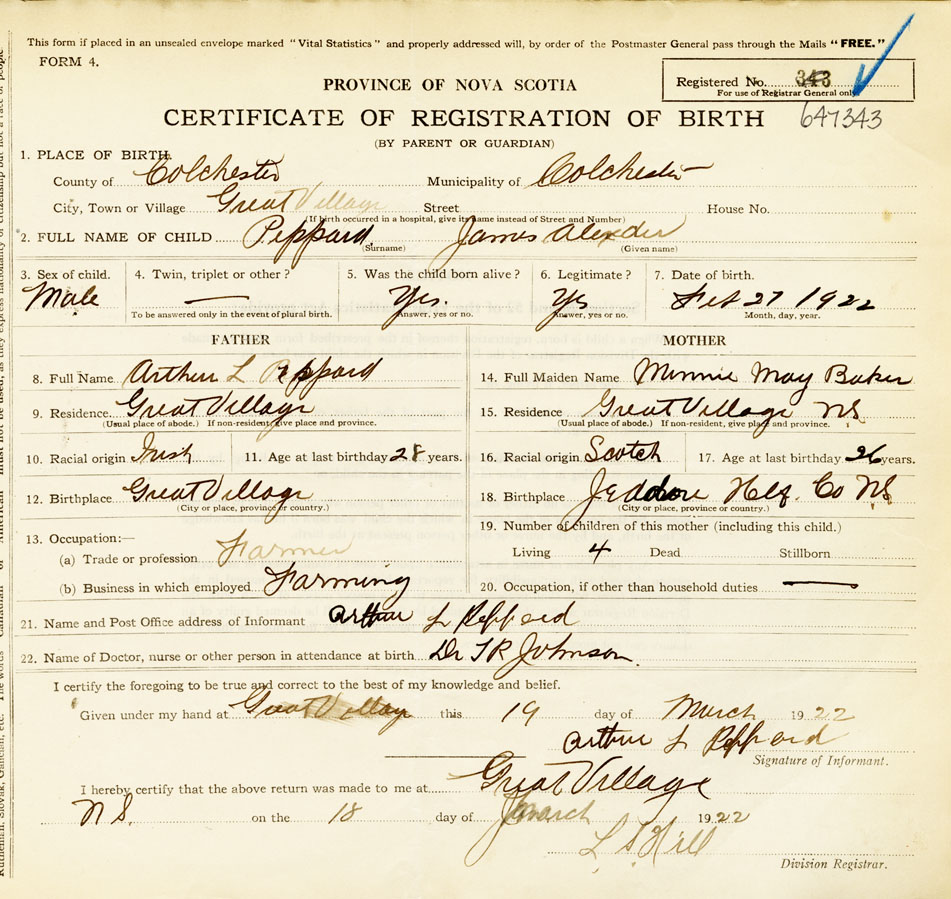 This form if placed in an unsealed envelope marked "Vital Statistics" and properly addressed will, by order of the Postmaster General pass through the Mails "FREE."
FORM 4.
PROVINCE OF NOVA SCOTIA
Registered No. 343
For use of Registrar General only
CERTIFICATE OF REGISTRATION OF BIRTH
647343
(BY PARENT OR GUARDIAN)
1. PLACE OF BIRTH.
County of Colchester Municipality of Colchester
City, Town or Village Great Village Street House No.
(If birth occurred in a hospital, give its name instead of Street and Number)
2. FULL NAME OF CHILD Peppard James Alexder
(Surname) (Given name)
3. Sex of child. 4. Twin, triplet or other? 5. Was the child born alive? 6. Legitimate? 7. Date of birth.
Male — Yes. Yes Feb 27 1922
To be answered only in the event of plural birth. Answer, yes or no. Answer, yes or no. Month, day, year.
FATHER MOTHER
8. Full Name Arthur L Peppard 14. Full Maiden Name Minnie May Baker
9. Residence Great Village 15. Residence Great Village NS
(Usual place of abode.) If non-resident, give place and province. (Usual place of abode.) If non-resident, give place and province.
10. Racial origin Irish 11. Age at last birthday 28 years. 16. Racial origin Scotch 17. Age at last birthday 26 years.
12. Birthplace Great Village 18. Birthplace Jeddore Hfx. Co NS
(City or place, province or country.) (City or place, province or country.)
13. Occupation:— 19. Number of children of this mother (including this child.)
(a) Trade or profession Farmer Living 4 Dead Stillborn
(b) Business in which employed Farming 20. Occupation, if other than household duties —
21. Name and Post Office address of Informant Arthur L Peppard
22. Name of Doctor, nurse or other person in attendance at birth Dr T R Johnson.
I certify the foregoing to be true and correct to the best of my knowledge and belief.
Given under my hand at Great Village this 19 day of March 1922
Arthur L Peppard
Signature of Informant.
I hereby certify that the above return was made to me at Great Village
N S. on the 18 day of March 1922
L S Hill
Division Registrar.